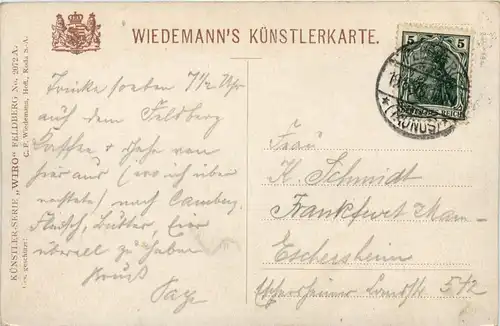 WIEDEMANN'S KÜNSTLERKARTE.
KÜNSTLER-SERIE „WIRO“ FELDBERG No. 2072 A.
Ges. geschützt! C. F. Wiedemann, Hofl., Roda S.-A.
5 5
DEUTSCHES REICH
(TAUNUS)
Trinke soeben 7½ Uhr
auf dem Feldberg
Kaffee & gehe von
hier aus (wo ich über
nachtete) nach Camberg.
Fleisch, Butter, Eier
überall zu haben
Gruß
Frau
K. Schmidt
Frankfurt Main-
Eschersheim
Eschersheimer Landstr. 512